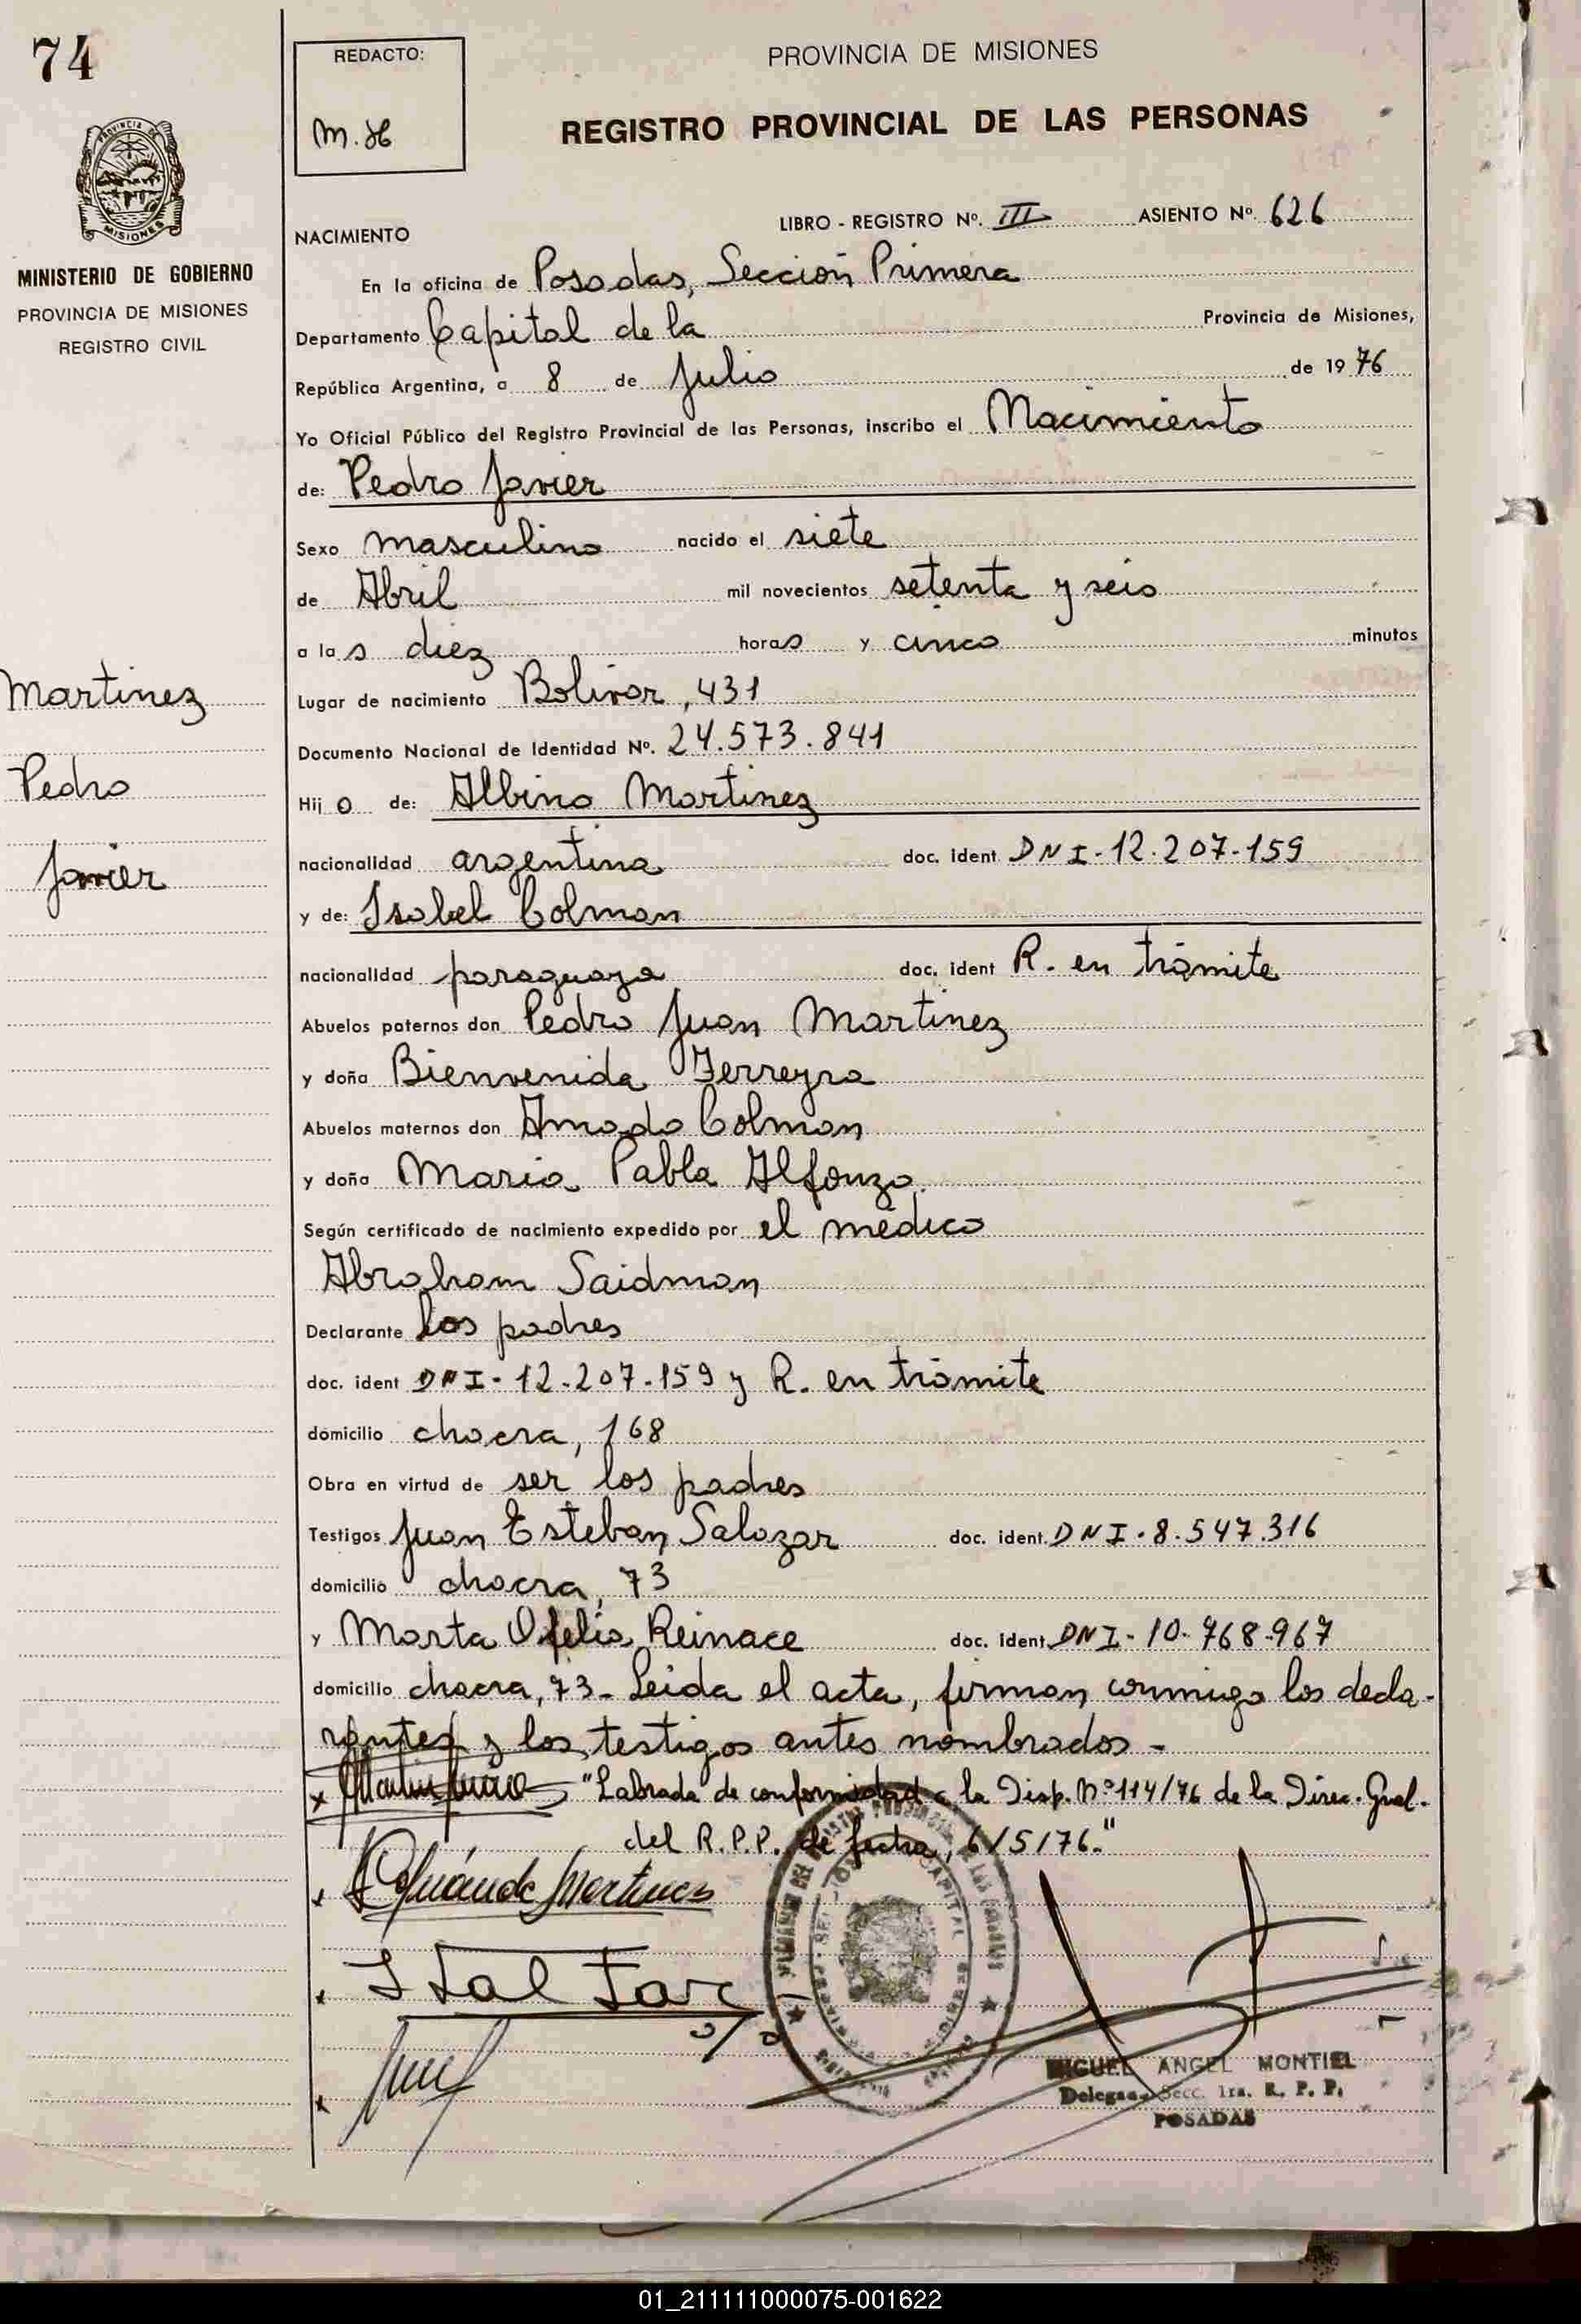 74
REDACTO:
M.H
PROVINCIA DE MISIONES
REGISTRO PROVINCIAL DE LAS PERSONAS
MISIONES
MINISTERIO DE GOBIERNO
PROVINCIA DE MISIONES
REGISTRO CIVIL
NACIMIENTO
LIBRO - REGISTRO Nº. III ASIENTO Nº. 626
En la oficina de Posadas, Sección Primera
Departamento Capital de la Provincia de Misiones,
República Argentina, a 8 de Julio de 1976
Yo Oficial Público del Registro Provincial de las Personas, inscribo el Nacimiento
de: Pedro Javier
Sexo masculino nacido el siete
de Abril mil novecientos setenta y seis
a las diez horas y cinco minutos
Martinez
Pedro
Javier
Lugar de nacimiento Bolivar, 431
Documento Nacional de Identidad Nº. 24.573.841
Hijo de: Albino Martinez
nacionalidad argentina doc. ident DNI-12.207-159
y de: Isabel Colman
nacionalidad paraguaya doc. ident R. en trámite
Abuelos paternos don Pedro Juan Martinez
y doña Bienvenida Ferreyra
Abuelos maternos don Amado Colman
y doña Maria Pabla Alfonzo.
Según certificado de nacimiento expedido por el médico
Abraham Saidman
Declarante los padres
doc. ident DNI-12-207-159 y R. en trámite
domicilio chacra, 168
Obra en virtud de ser los padres
Testigos Juan Esteban Salazar doc. ident. DNI-8.547.316
domicilio chacra, 73
y Marta Ofelia Reinace doc. ident DNI-10-768-967
domicilio chacra, 73- Leida el acta, firman conmigo los decla-
rantes y los testigos antes nombrados-
"Labrada de conformidad a la Disp. Nº114/76 de la Direc. Gral.
del R.P.P. de fecha, 6/5/76."
MIGUEL ANGEL MONTIEL
Secc. 1ra. R. P. P.
POSADAS
01_211111000075-001622